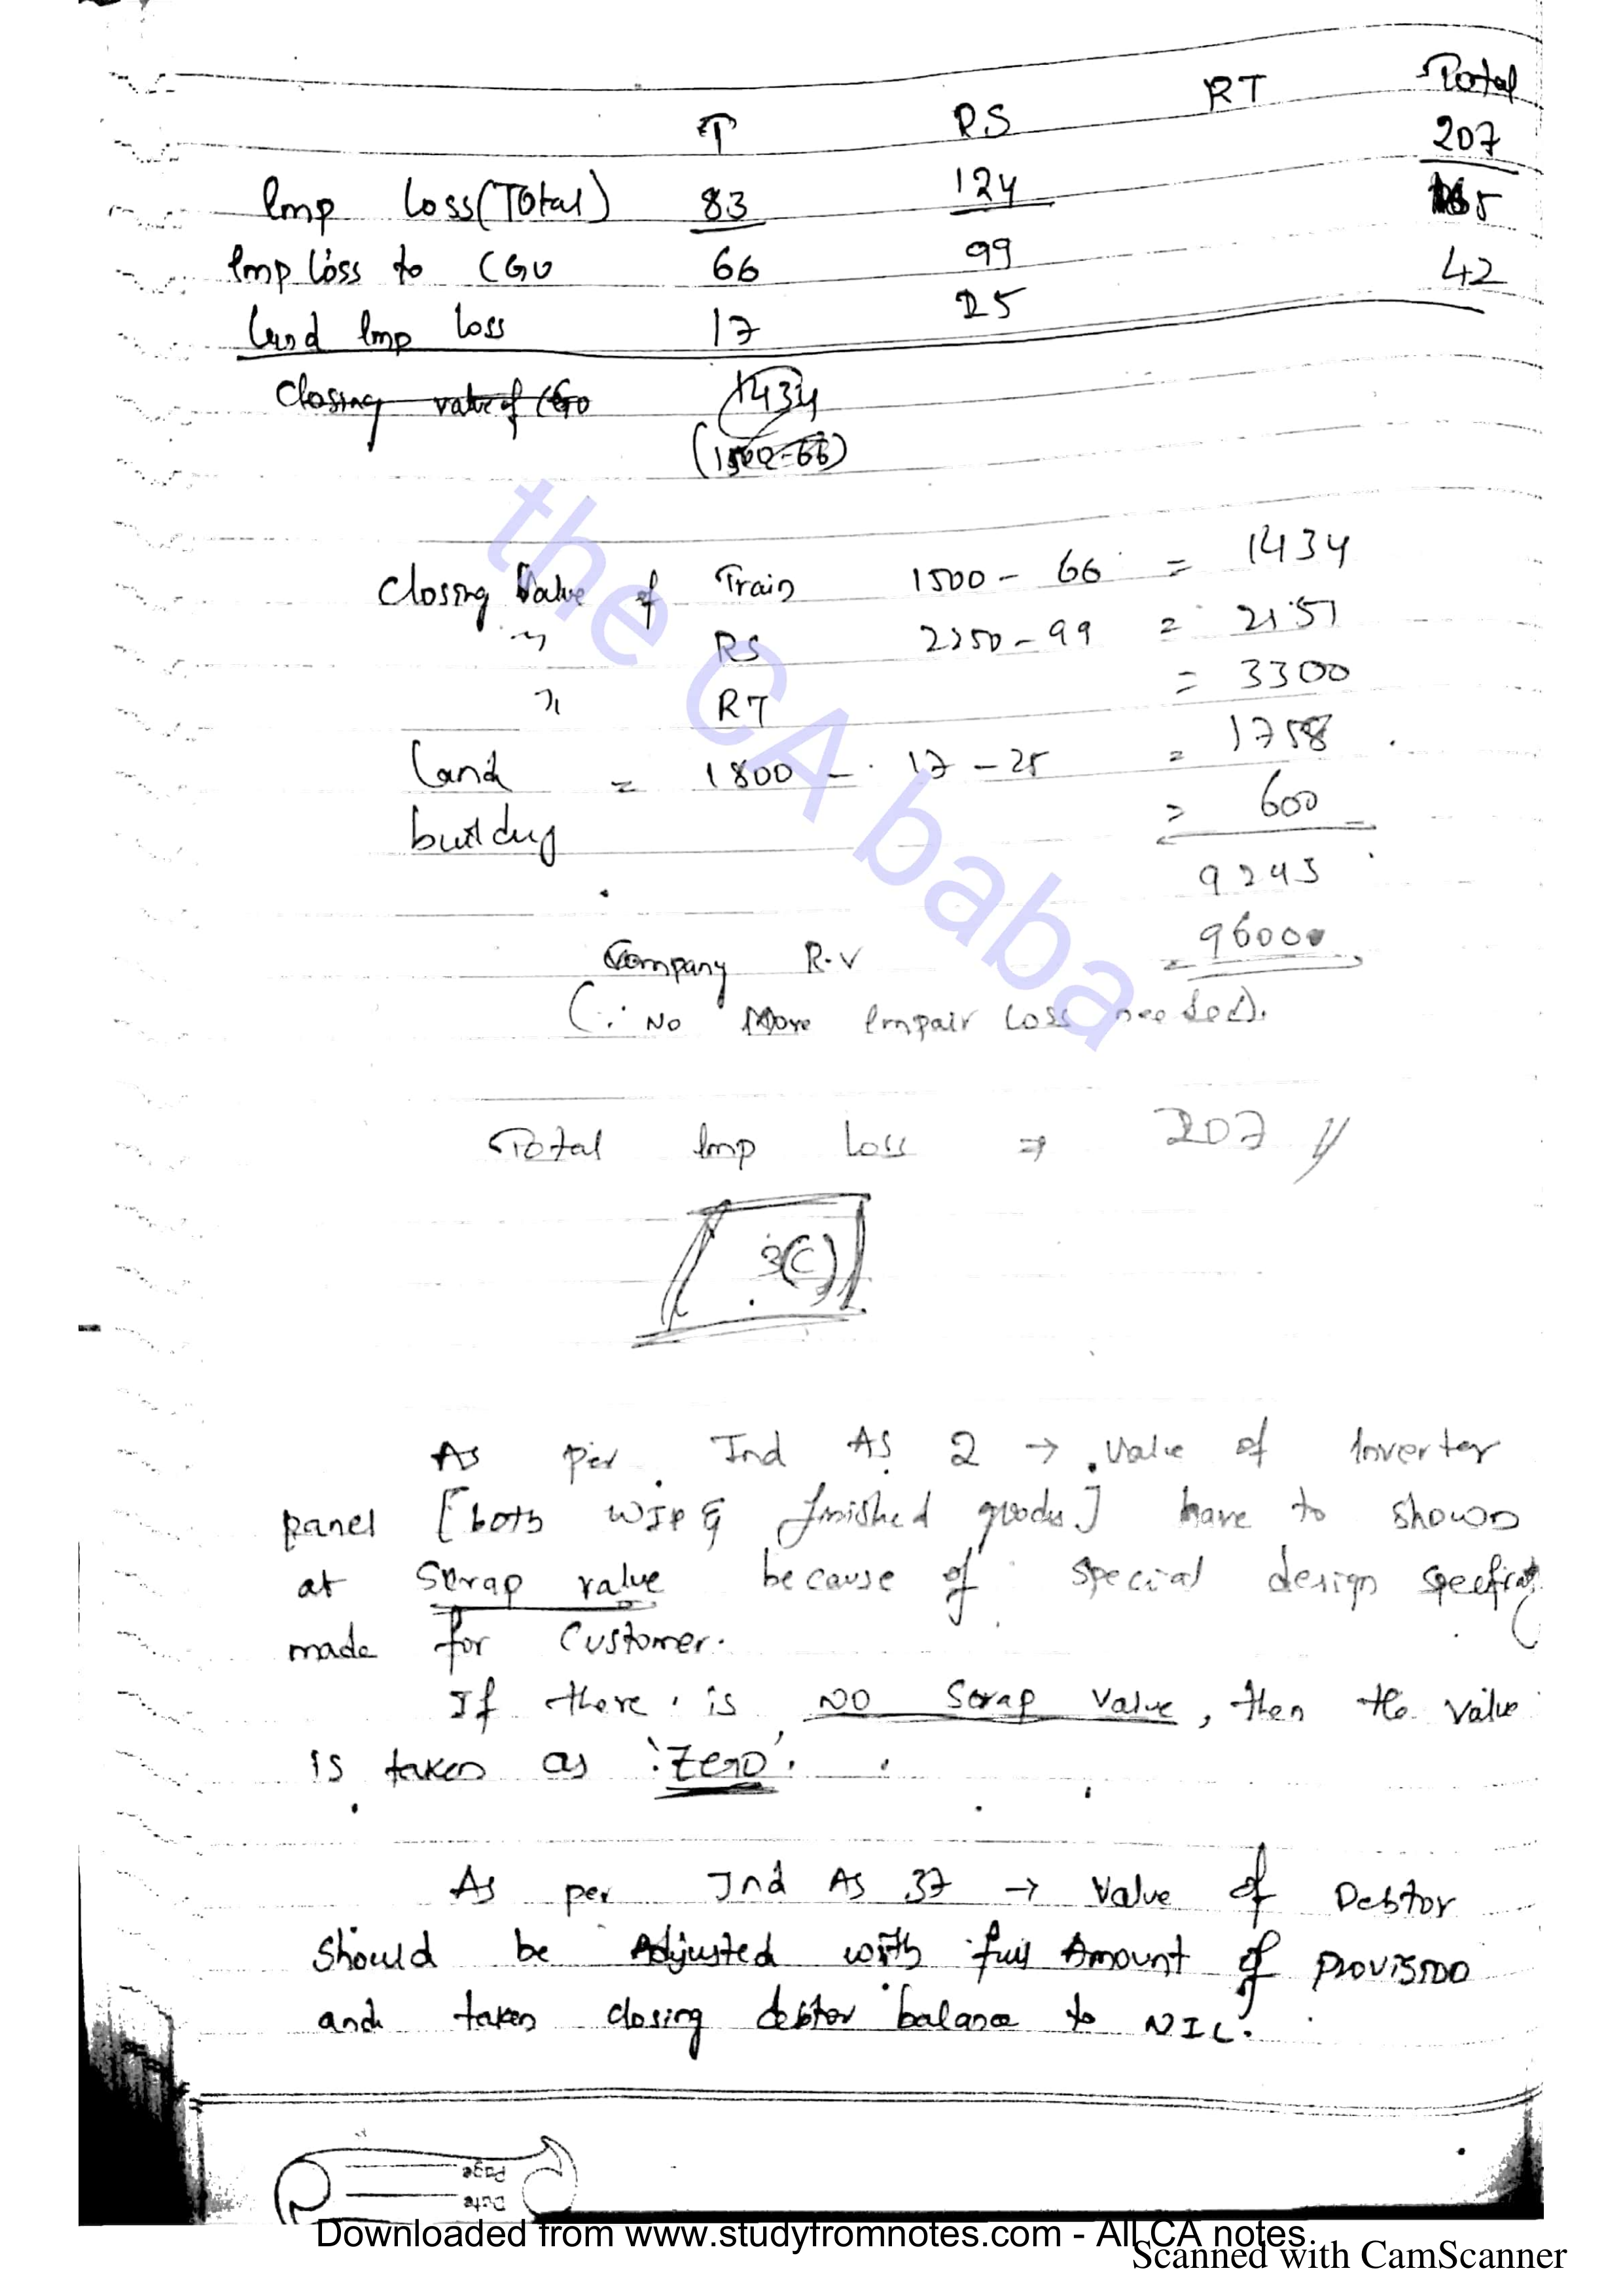 T RS RT Total
207
Imp Loss(Total) 83 124 165
Imp Loss to CGU 66 99 42
Land Imp Loss 17 25
Closing value of CGU 1434
(1500-66)
Closing Value of Train 1500 - 66 = 1434
" RS 2250 - 99 = 2151
" RT = 3300
Land = 1800 - 17 - 25 = 1758
building = 600
9243
Company R.V = 9600
(∴ No More Impair Loss needed).
Total Imp Loss ⇒ 207 //
3(C)
As per Ind AS 2 → Value of Inverter
panel [both WIP & finished goods] have to shown
at Scrap value because of special design
made for Customer.
If there is NO Scrap Value, then the value
is taken as 'Zero'.
As per Ind AS 37 → Value of Debtor
should be Adjusted with full Amount of provision
and taken closing debtor balance to NIL.
the CA baba
Page
Date
Downloaded from www.studyfromnotes.com - All CA notes
Scanned with CamScanner